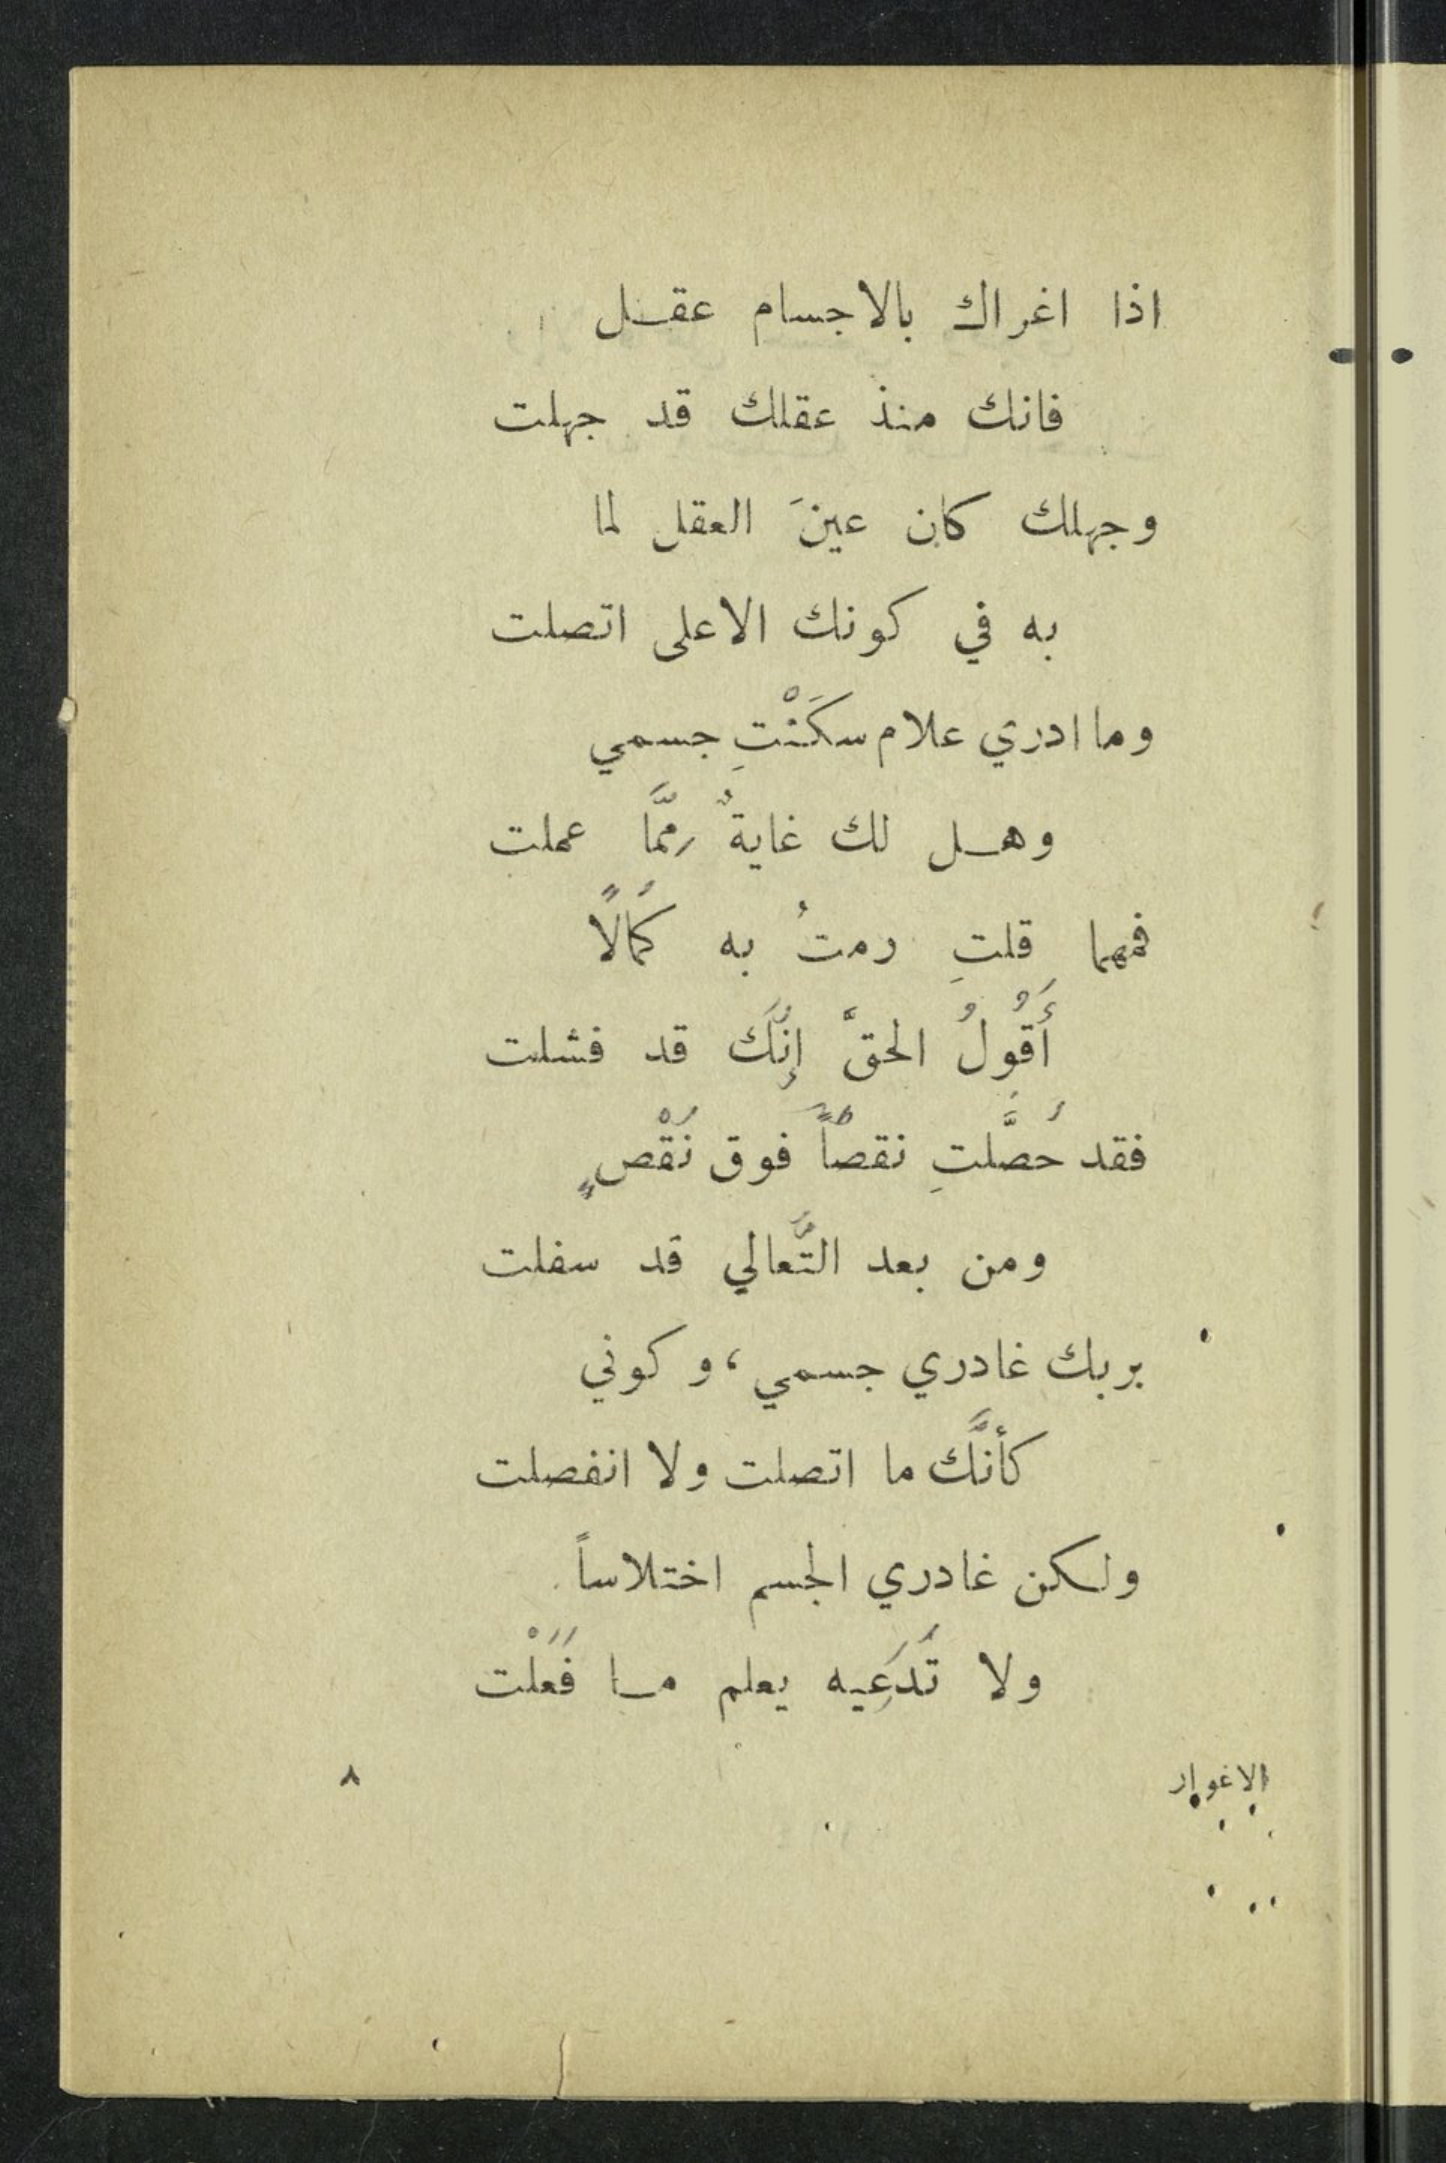 اذا اغراك بالاجسام عقل
فانك منذ عقلك قد جهلت
وجهلك كان عينَ العقل لما
به في كونك الاعلى اتصلت
وما ادري علام سكَنْتِ جسمي
وهل لك غايةٌ مِمَّا عملت
فمهما قلتِ رمتُ به كَمالًا
أَقُولُ الحقَّ إِنَّكَ قد فشلت
فقد حُصَّلتِ نقصاً فوق نَقْصٍ
ومن بعد التَّعالي قد سفلت
بربك غادري جسمي، وكوني
كأنَّك ما اتصلت ولا انفصلت
ولكن غادري الجسم اختلاساً
ولا تَدَعِيه يعلم ما فَعَلْت
الاغوار
٨